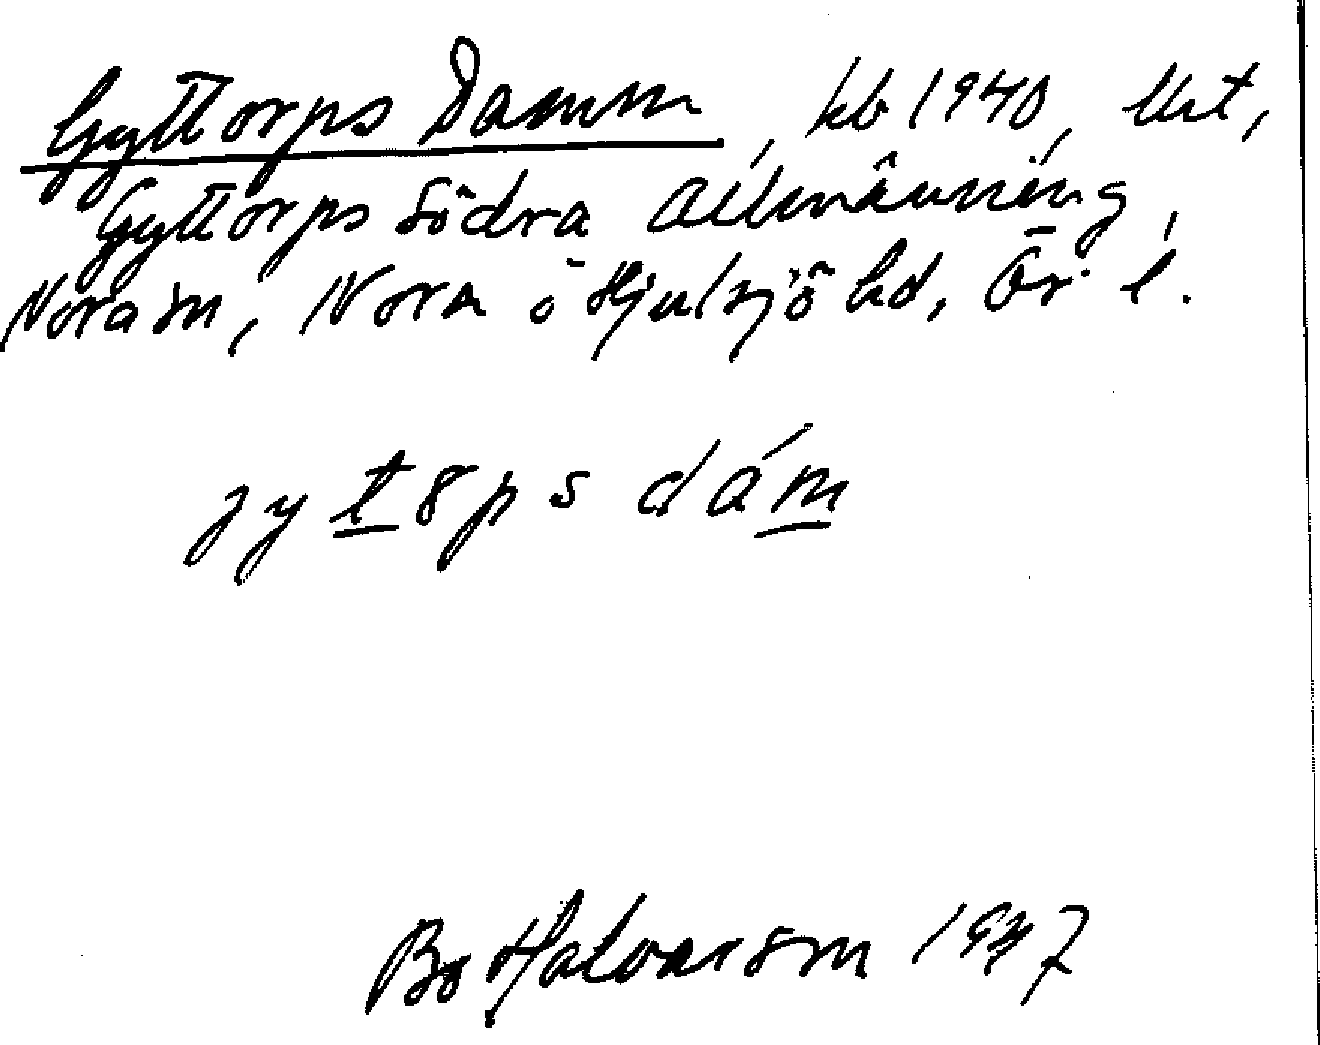 Gyttorps Damm, kb 1940, Urt,
Gyttorps södra allmänning,
Nora sn, Nora o Hjulsjö hd, Ör. l.
jytops dám
Bo Halvarson 1947